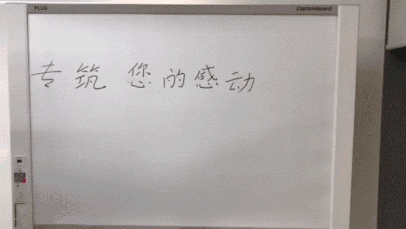 PLUS Captureboard
专筑 您的感动